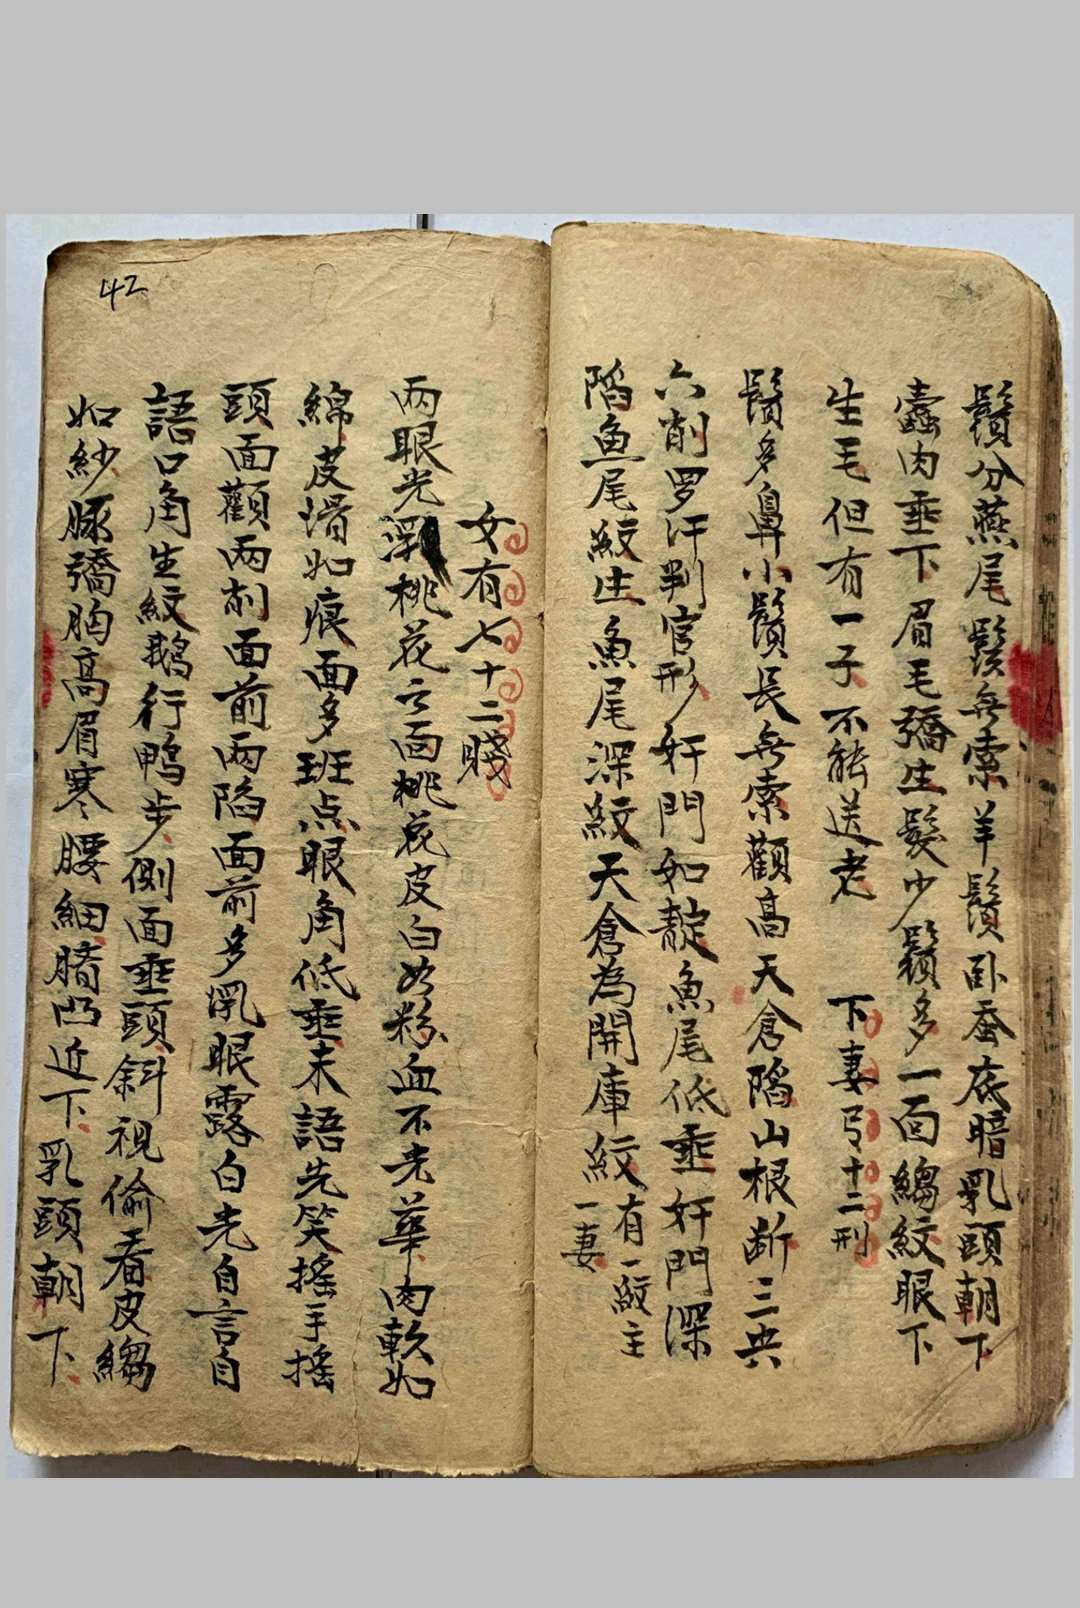 鬚分燕尾鬚無索羊鬚卧蚕底暗乳頭朝下
蠢肉垂下眉毛矞生髮少鬚多一面縐紋眼下
生毛但有一子不能送老 下妻弓十二刑
鬚多鼻小鬚長無索顴高天倉陷山根断三共
六削罗汗判官形奸門如靛魚尾低垂奸門深
陷魚尾紋生魚尾深紋天倉為開庫紋有一紋主
一妻
女有七十二賤
兩眼光浮桃花云面桃花皮白如粉血不光華肉軟如
綿皮滑如痕面多班点眼角低垂未語先笑搖手搖
頭面顴兩削面前兩陷面前多乳眼露白光自言自
語口角生紋鵝行鴨步側面垂頭斜視偷看皮縐
如紗豚矞胸高眉寒腰細臍凸近下乳頭朝下
42